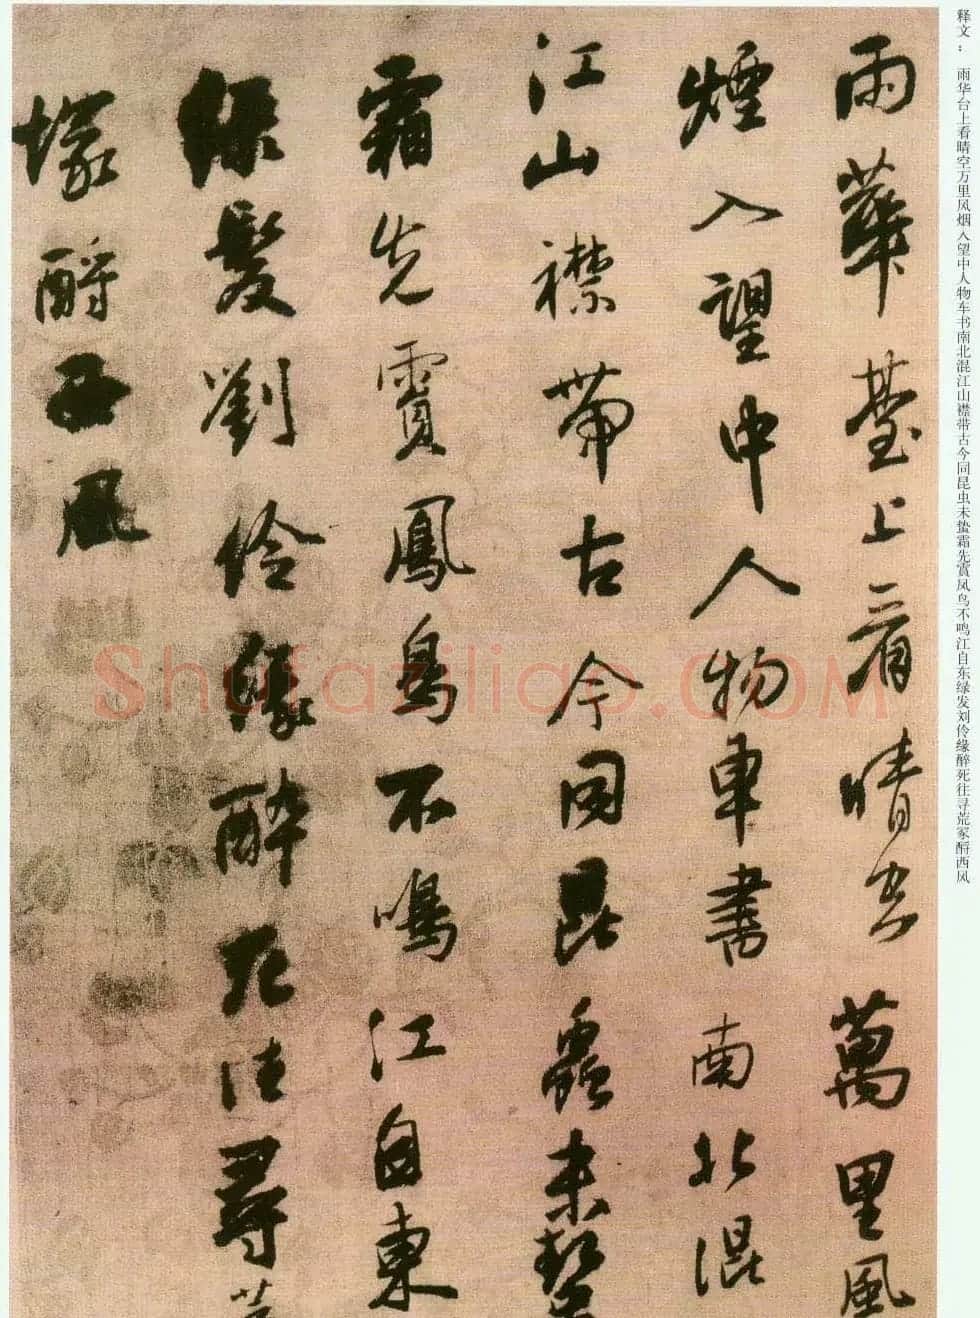 释文：雨华台上看晴空万里风烟入望中人物车书南北混江山襟带古今同昆虫未蛰霜先霣凤鸟不鸣江自东绿发刘伶缘醉死往寻荒冢酹西风
雨華臺上看晴空萬里風
煙入望中人物車書南北混
江山襟帶古今同昆蟲未蟄
霜先霣鳳鳥不鳴江自東
綠髮劉伶緣醉死往尋荒
塚酹西風
Shufaziliao.COM